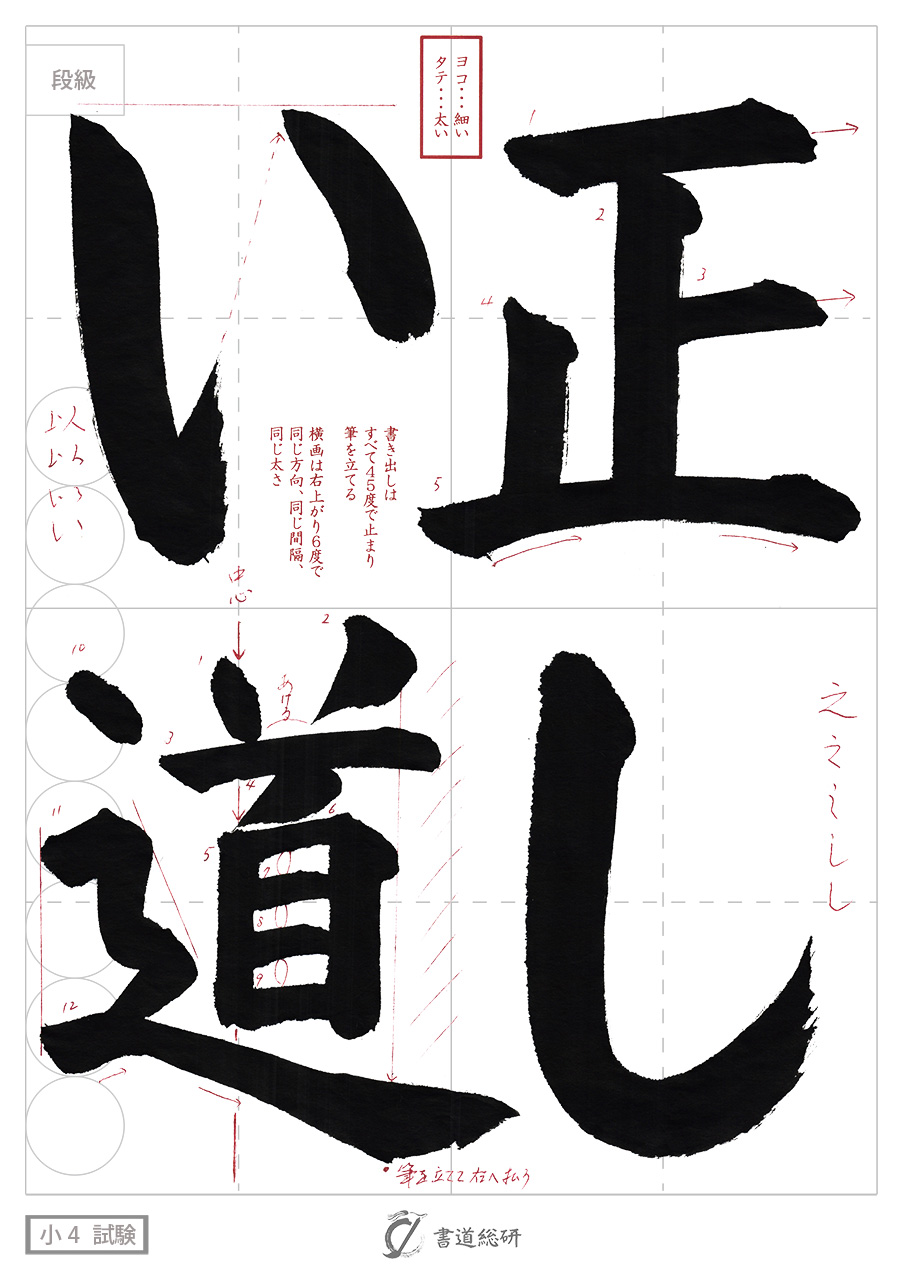 段級
ヨコ・・・細い
タテ・・・太い
正し
い道
1
2
3
4
5
書き出しは
すべて45度で止まり
筆を立てる
横画は右上がり6度で
同じ方向、同じ間隔、
同じ太さ
以以いい
中心
之之しし
1
2
3
4
5
6
7
8
9
10
11
12
あける
・筆を立てて右へ払う
小4 試験
書道総研